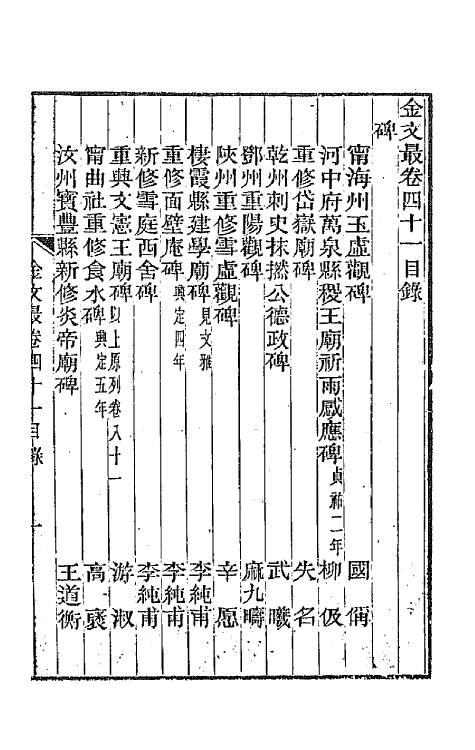 金文最卷四十一目錄
碑
甯海州玉虛觀碑 國偁
河中府萬泉縣稷王廟祈雨感應碑貞祐二年 柳伋
重修岱嶽廟碑 失名
乾州刺史抹撚公德政碑 武曦
鄧州重陽觀碑 麻九疇
陝州重修雪虛觀碑 辛愿
棲霞縣建學廟碑見文雅 李純甫
重修面壁庵碑興定四年 李純甫
新修雪庭西舍碑 李純甫
重興文憲王廟碑以上原列卷八十一 游淑
甯曲社重修食水碑興定五年 高褒
汝州寶豐縣新修炎帝廟碑 王道衡
金文最卷四十一目錄 一